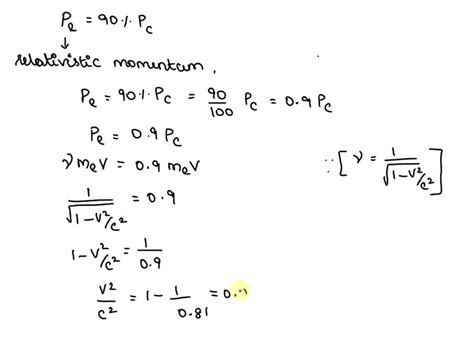 Pe = 90% Pc
↓
relativistic momentum,
Pe = 90% Pc = 90/100 Pc = 0.9 Pc
Pe = 0.9 Pc
γ meV = 0.9 meV
∵ [ γ = 1/√(1-v²/c²) ]
1/√(1-v²/c²) = 0.9
1-v²/c² = 1/0.9
v²/c² = 1 - 1/0.81 = 0.